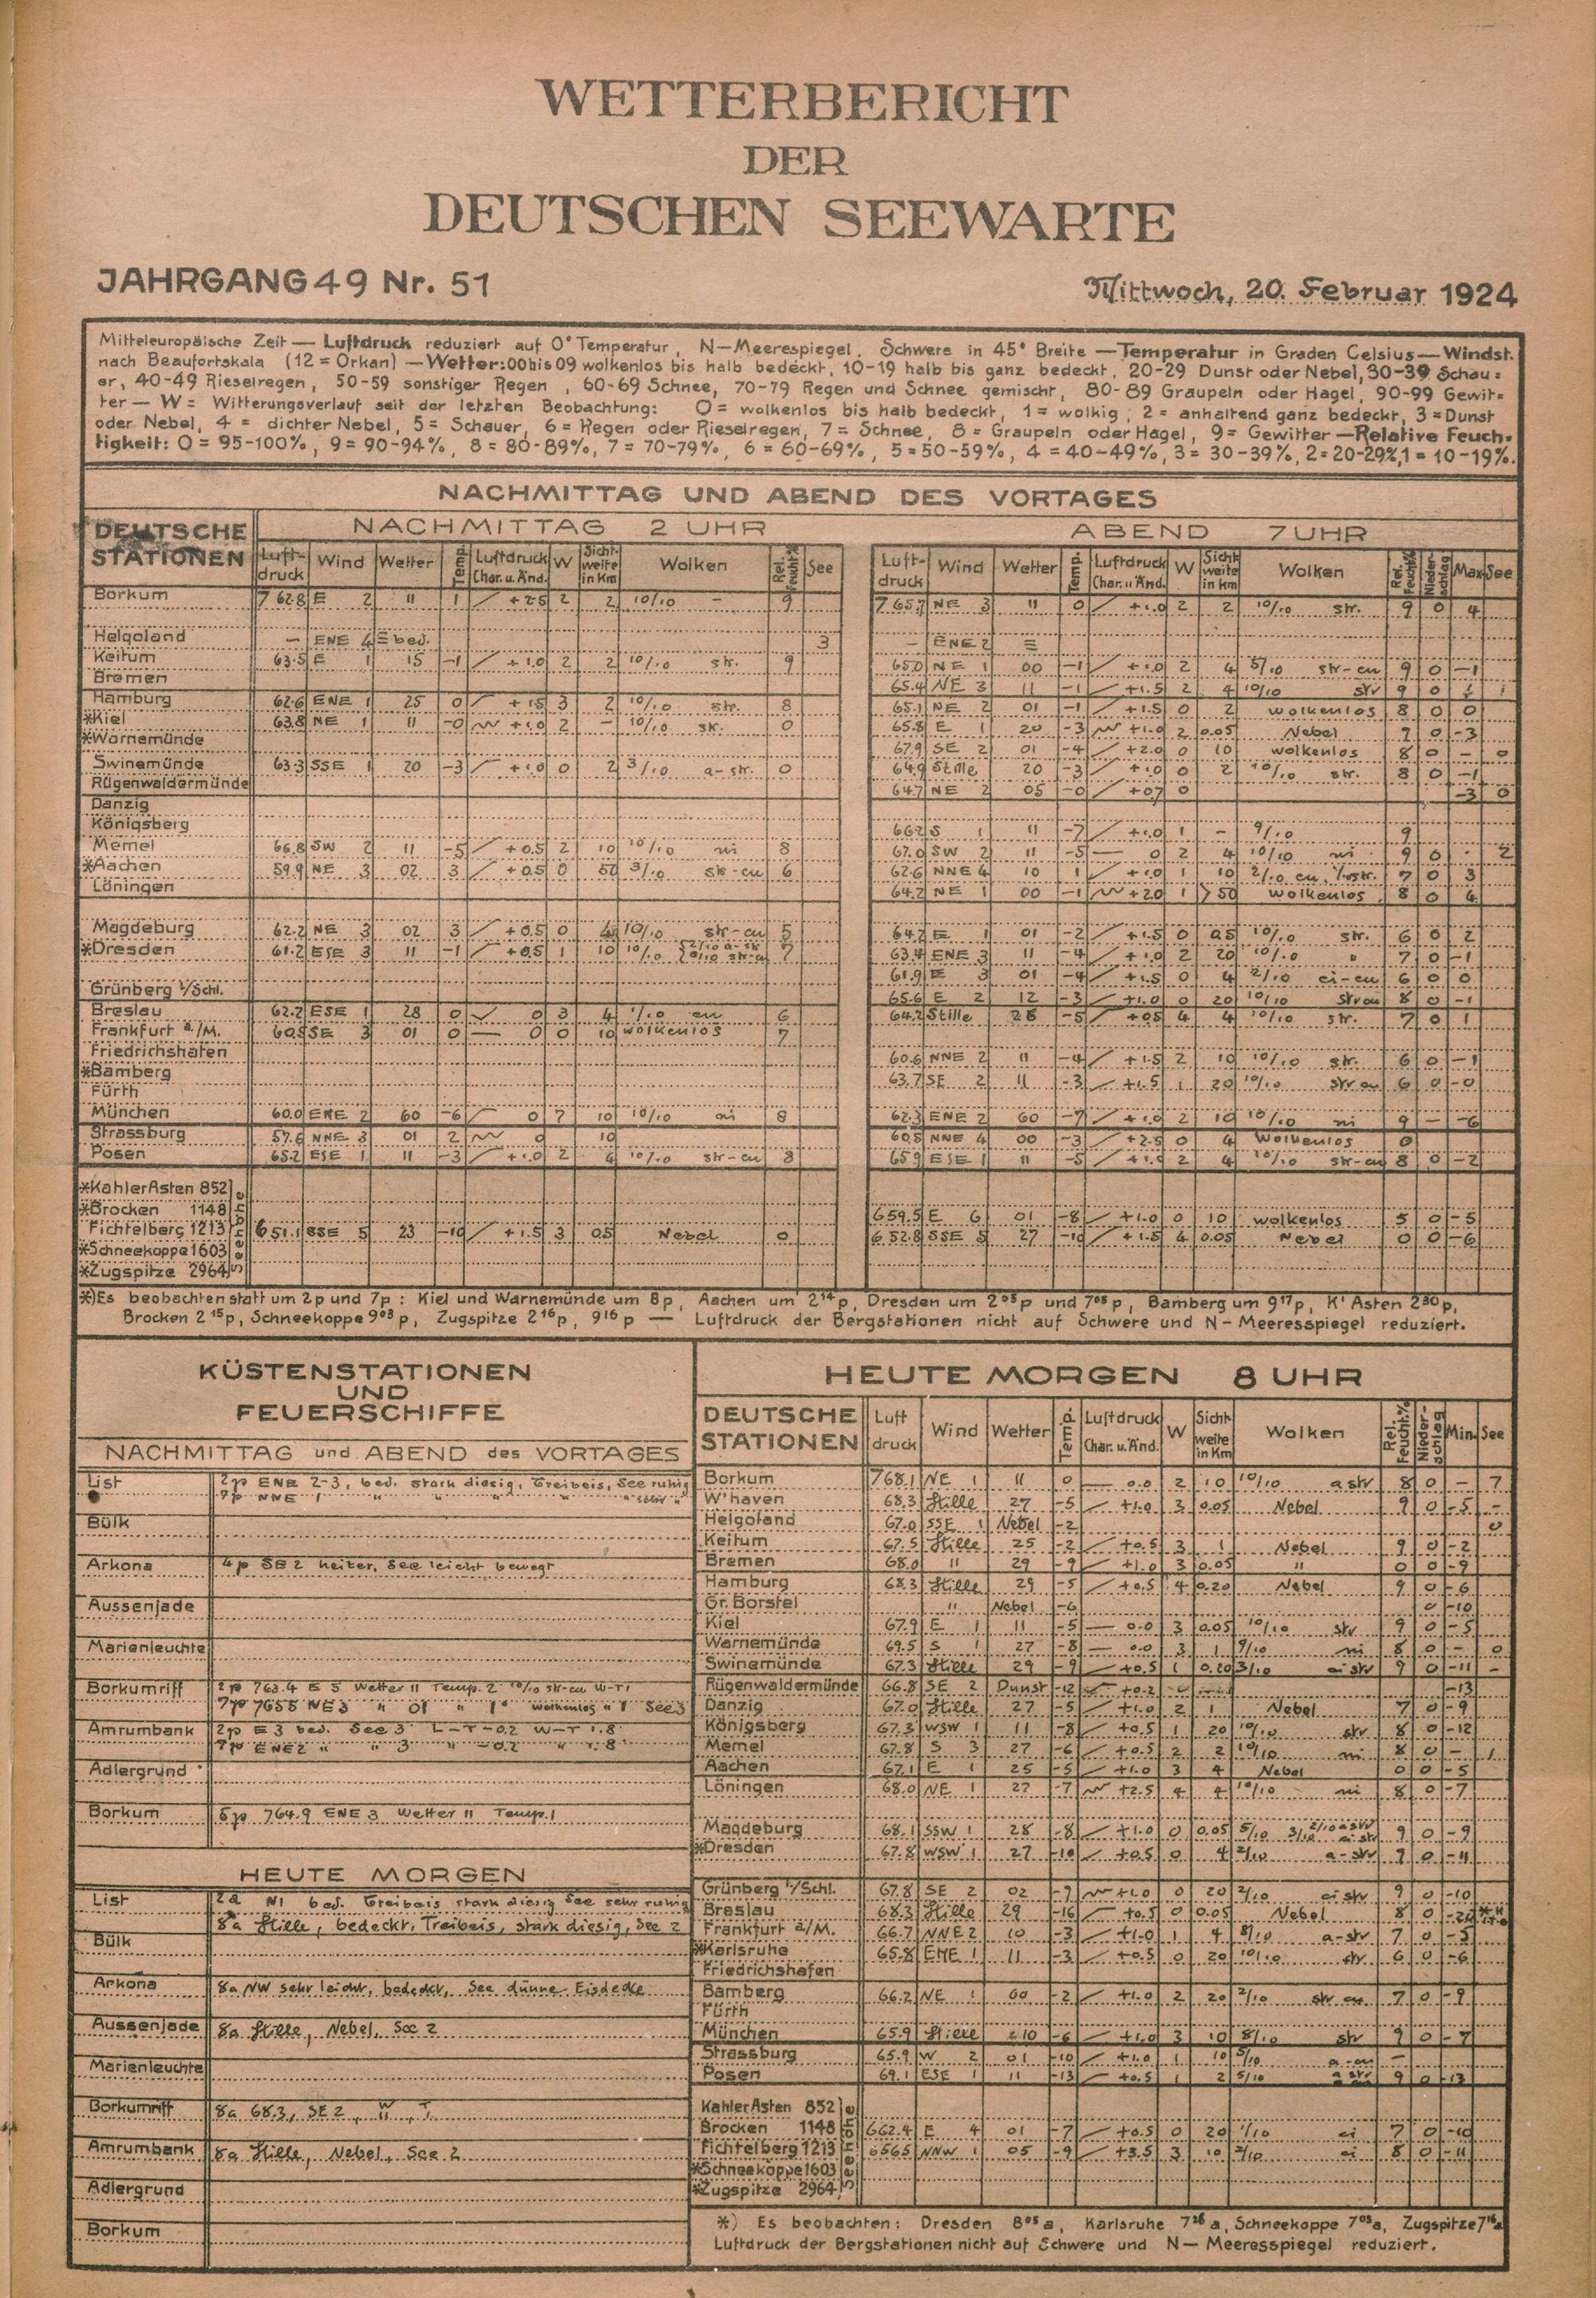 WETTERBERICHT
DER
DEUTSCHEN SEEWARTE
JAHRGANG 49 Nr. 51
Mittwoch, 20. Februar 1924
Mitteleuropäische Zeit — Luftdruck reduziert auf 0° Temperatur, N—Meerespiegel. Schwere in 45° Breite — Temperatur in Graden Celsius — Windst.
nach Beaufortskala (12 = Orkan) — Wetter: 00 bis 09 wolkenlos bis halb bedeckt, 10-19 halb bis ganz bedeckt, 20-29 Dunst oder Nebel, 30-39 Schau=
er, 40-49 Rieselregen, 50-59 sonstiger Regen, 60-69 Schnee, 70-79 Regen und Schnee gemischt, 80-89 Graupeln oder Hagel, 90-99 Gewit=
ter — W = Witterungsverlauf seit der letzten Beobachtung: 0 = wolkenlos bis halb bedeckt, 1 = wolkig, 2 = anhaltend ganz bedeckt, 3 = Dunst
oder Nebel, 4 = dichter Nebel, 5 = Schauer, 6 = Regen oder Rieselregen, 7 = Schnee, 8 = Graupeln oder Hagel, 9 = Gewitter — Relative Feuch=
tigkeit: 0 = 95-100%, 9 = 90-94%, 8 = 80-89%, 7 = 70-79%, 6 = 60-69%, 5 = 50-59%, 4 = 40-49%, 3 = 30-39%, 2 = 20-29%, 1 = 10-19%.
NACHMITTAG UND ABEND DES VORTAGES
DEUTSCHE STATIONEN
NACHMITTAG 2 UHR
Luft-druck Wind Wetter Temp. Luftdruck Char. u. Änd. W Sichtweite in Km Wolken Rel. Feucht.% See
ABEND 7 UHR
Luft-druck Wind Wetter Temp. Luftdruck Char. u. Änd. W Sichtweite in Km Wolken Rel. Feucht.% Nieder-schlag Max. See
Borkum 762.8 E 2 11 1 +2.5 2 2 10/10 – 9 765.7 NE 3 11 0 +1.0 2 2 10/10 str. 9 0 4
Helgoland – ENE 4 ≡ bed. 3 – ENE 2 ≡
Keitum 63.5 E 1 15 -1 +1.0 2 2 10/10 str. 9 65.0 NE 1 00 -1 +1.0 2 4 5/10 str-cu 9 0 -1
Bremen 65.4 NE 3 11 -1 +1.5 2 4 10/10 str 9 0
Hamburg 62.6 ENE 1 25 0 +1.5 3 2 10/10 str. 8 65.1 NE 2 01 -1 +1.5 0 2 wolkenlos 8 0 0
*Kiel 63.8 NE 1 11 -0 +1.0 2 – 10/10 str. 0 65.8 E 1 20 -3 +1.0 2 0.05 Nebel 9 0 -3
*Warnemünde 67.9 SE 2 01 -4 +2.0 0 10 wolkenlos 8 0 – 0
Swinemünde 63.3 SSE 1 20 -3 +1.0 0 2 3/10 a-str. 0 64.9 Stille 20 -3 +1.0 0 2 10/10 str. 8 0 -1
Rügenwaldermünde 64.7 NE 2 05 -0 +0.7 0 -3 0
Danzig
Königsberg 66.2 S 1 11 -7 +1.0 1 – 9/10 9
Memel 66.8 SW 2 11 -5 +0.5 2 10 10/10 ni 8 67.0 SW 2 11 -5 — 0 2 4 10/10 ni 9 0 . 2
*Aachen 59.9 NE 3 02 3 +0.5 0 50 3/10 str-cu 6 62.6 NNE 4 10 1 +1.0 1 10 2/10 cu, str. 7 0 3
Löningen 64.2 NE 1 00 -1 +2.0 1 >50 wolkenlos 8 0 4
Magdeburg 62.2 NE 3 02 3 +0.5 0 4 10/10 str-cu 5 64.2 E 1 01 -2 +1.5 0 0.5 10/10 str. 6 0 2
*Dresden 61.2 ESE 3 11 -1 +0.5 1 10 10/10 7 63.4 ENE 3 11 -4 +1.0 2 20 10/10 " 7 0 -1
61.9 E 3 01 -4 +1.5 0 4 2/10 ci-cu 6 0 0
Grünberg i/Schl. 65.6 E 2 12 -3 +1.0 0 20 10/10 str cu 8 0 -1
Breslau 62.2 ESE 1 28 0 0 3 4 1/10 cu 6 64.2 Stille 28 -5 +0.5 4 4 10/10 str. 7 0 1
Frankfurt a./M. 60.8 SE 3 01 0 — 0 0 10 wolkenlos 7
Friedrichshafen 60.6 NNE 2 11 -4 +1.5 2 10 10/10 str. 6 0 -1
*Bamberg 63.7 SE 2 11 -3 +1.5 1 20 10/10 str cu 6 0 -0
Fürth
München 60.0 ENE 2 60 -6 0 7 10 10/10 ni 8 62.3 ENE 2 60 -7 +1.0 2 10 10/10 ni 9 – -6
Strassburg 57.6 NNE 3 01 2 0 10 60.8 NNE 4 00 -3 +2.5 0 4 Wolkenlos 0
Posen 65.2 ESE 1 11 -3 +1.0 2 4 10/10 str-cu 8 65.9 ESE 1 11 -5 +1.0 2 4 10/10 str-cu 8 0 -2
*Kahler Asten 852
*Brocken 1148 659.5 E 6 01 -8 +1.0 0 10 wolkenlos 5 0 -5
Fichtelberg 1213 651.1 SSE 5 23 -10 +1.5 3 0.5 Nebel 0 652.8 SSE 5 27 -10 +1.5 4 0.05 Nebel 0 0 -6
*Schneekoppe 1603
*Zugspitze 2964
Seehöhe
*) Es beobachten statt um 2p und 7p: Kiel und Warnemünde um 8p, Aachen um 2¹⁴p, Dresden um 2⁰⁵p und 7⁰⁵p, Bamberg um 9¹⁷p, K' Asten 2³⁰p,
Brocken 2¹⁵p, Schneekoppe 9⁰³p, Zugspitze 2¹⁶p, 9¹⁶p — Luftdruck der Bergstationen nicht auf Schwere und N—Meeresspiegel reduziert.
KÜSTENSTATIONEN
UND
FEUERSCHIFFE
NACHMITTAG und ABEND des VORTAGES
List 2p ENE 2-3, bed. stark diesig, Treibeis, See ruhig
7p NNE 1 " " " " sehr "
Bülk
Arkona 4p SE 2 heiter, See leicht bewegt
Aussenjade
Marienleuchte
Borkumriff 2p 763.4 E 5 Wetter 11 Temp. 2 10/10 str-cu W-T1
7p 765.5 NE 3 " 01 " 1° wolkenlos " 1 See 3
Amrumbank 2p E 3 bed. See 3 L-T -0.2 W-T 1.8
7p ENE 2 " " 3 " -0.2 " 1.8
Adlergrund
Borkum 5p 764.9 ENE 3 Wetter 11 Temp. 1
HEUTE MORGEN
List 2a N1 bed. Treibeis stark diesig See sehr ruhig
8a Stille, bedeckt, Treibeis, stark diesig, See 2
Bülk
Arkona 8a NW sehr leicht, bedeckt, See dünne Eisdecke
Aussenjade 8a Stille, Nebel, See 2
Marienleuchte
Borkumriff 8a 68.3, SE 2, W 11, T
Amrumbank 8a Stille, Nebel, See 2
Adlergrund
Borkum
HEUTE MORGEN 8 UHR
DEUTSCHE STATIONEN Luft druck Wind Wetter Temp. Luftdruck Char. u. Änd. W Sichtweite in Km Wolken Rel. Feucht.% Nieder-schlag Min. See
Borkum 768.1 NE 1 11 0 — 0.0 2 10 10/10 a str 8 0 – 7
W'haven 68.3 Stille 27 -5 +1.0 3 0.05 Nebel 9 0 -5 –
Helgoland 67.0 SSE 1 Nebel -2 0
Keitum 67.5 Stille 25 -2 +0.5 3 1 Nebel 9 0 -2
Bremen 68.0 " 29 -9 +1.0 3 0.05 " 0 0 -9
Hamburg 68.3 Stille 29 -5 +0.5 4 0.20 Nebel 9 0 -6
Gr. Borstel " Nebel -6 0 -10
Kiel 67.9 E 1 11 -5 — 0.0 3 0.05 10/10 str 9 0 -5
Warnemünde 69.5 S 1 27 -8 — 0.0 3 1 9/10 ni 8 0 – 0
Swinemünde 67.3 Stille 29 -9 +0.5 1 0.20 3/10 ci str 9 0 -11 –
Rügenwaldermünde 66.8 SE 2 Dunst -12 +0.2 -13
Danzig 67.0 Stille 27 -5 +1.0 2 1 Nebel 7 0 -9
Königsberg 67.3 WSW 1 11 -8 +0.5 1 20 10/10 str 8 0 -12
Memel 67.8 S 3 27 -6 +0.5 2 2 10/10 ni 8 0 – 1
Aachen 67.1 E 1 25 -5 +1.0 3 4 Nebel 0 0 -5
Löningen 68.0 NE 1 27 -7 +2.5 4 4 10/10 ni 8 0 -7
Magdeburg 68.1 SSW 1 28 -8 +1.0 0 0.05 5/10 3/10 ci str 2/10 a str 9 0 -9
*Dresden 67.8 WSW 1 27 -10 +0.5 0 4 2/10 a-str 9 0 -11
Grünberg i/Schl. 67.8 SE 2 02 -9 +1.0 0 20 2/10 ci str 9 0 -10
Breslau 68.3 Stille 29 -16 +0.5 0 0.05 Nebel 8 0
Frankfurt a/M. 66.7 NNE 2 10 -3 +1.0 1 4 8/10 a-str 7 0 -5
*Karlsruhe 65.8 ENE 1 11 -3 +0.5 0 20 10/10 str 6 0 -6
Friedrichshafen
Bamberg 66.2 NE 1 00 -2 +1.0 2 20 2/10 str cu 7 0 -9
Fürth
München 65.9 Stille 10 -6 +1.0 3 10 8/10 str 9 0 -7
Strassburg 65.9 W 2 01 -10 +1.0 1 10 5/10 a-cu –
Posen 69.1 ESE 1 11 -13 +0.5 1 2 5/10 a str 9 0 -13
Kahler Asten 852
Brocken 1148 662.4 E 4 01 -7 +0.5 0 20 1/10 ci 7 0 -10
Fichtelberg 1213 656.5 NNW 1 05 -9 +3.5 3 10 2/10 ci 8 0 -11
*Schneekoppe 1603
*Zugspitze 2964
Seehöhe
*) Es beobachten: Dresden 8⁰⁵a, Karlsruhe 7²⁶a, Schneekoppe 7⁰³a, Zugspitze 7¹⁶a
Luftdruck der Bergstationen nicht auf Schwere und N—Meeresspiegel reduziert.